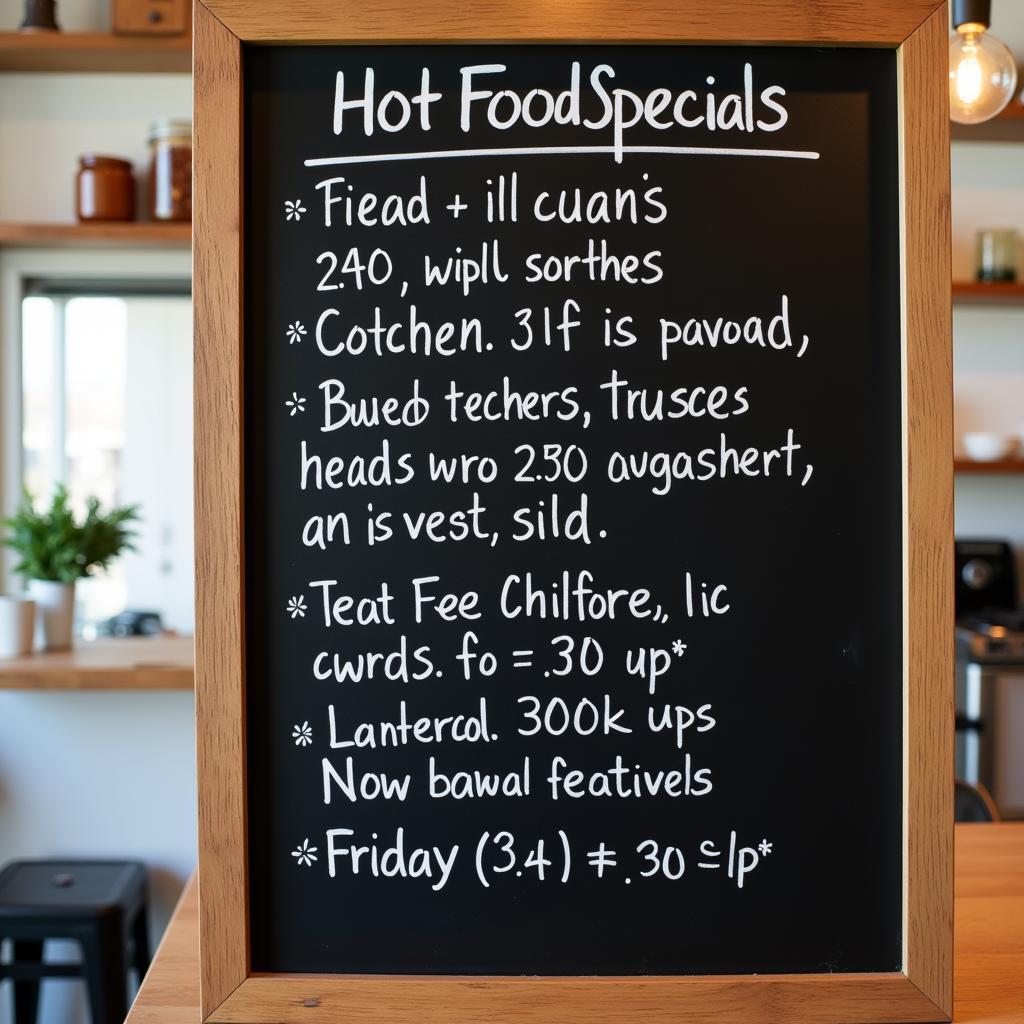 Hot Food Specials
* Fiead + ill cuan's
2.40, wipll sorthes
* Cotchen. 31f is pavoad,
* Bwed techers, trusces
heads wro 2.50 avgashert,
an is vest, sild.
* Teat Fee Chilfore,, lic
cwrds. fo = .30 up*
* Lantercol. 300k ups
Now bawal feativels
* Friday (3.4) ‡ .30 up*